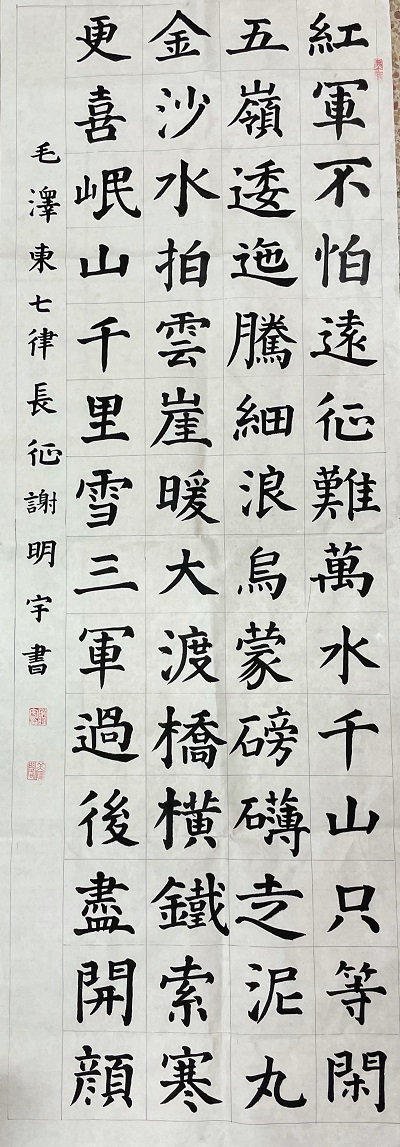 紅軍不怕遠征難萬水千山只等閑
五嶺逶迤騰細浪烏蒙磅礴走泥丸
金沙水拍雲崖暖大渡橋橫鐵索寒
更喜岷山千里雪三軍過後盡開顔
毛澤東七律長征謝明宇書